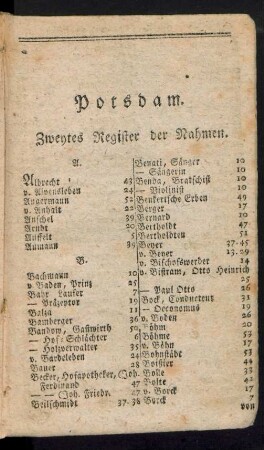 Potsdam.
Zweytes Register der Nahmen.
A.
Albrecht 43
v. Alvensleben 24
Angermann 52
v. Anhalt 22
Anschel 39
Arndt 20
Auffelt 5
Aumann 39
B.
Bachmann 10
v. Baden, Prinz 25
Bahr Laufer 7
— Präzeptor 21
Balza 11
Bamberger 36
Bandow, Gastwirth 50
— Hof-Schlächter 6
— Holzverwalter 35
v. Bardeleben 20
Bauer 28
Becker, Hofapotheker, (Joh.
Ferdinand 47
— — (Joh. Friedr. 47
Beilschmidt 37. 38
Benati, Sänger 10
— Sängerin 10
Benda, Bratschist 10
— Violinist 10
Beukertsche Erben 49
Berger 17
Bernard 10
Bertholdt 47
Bertholdten 51
Beyer 37. 45
v. Beyer 13. 29
v. Bischofswerder 14
v. Bistram, Otto Heinrich
— Paul Otto 26
Bock, Conducteur 31
— Oeconomus 19
v. Boden 26
Böhm 20
Böhme 53
v. Böhn 17
Bohnstädt 52
Boistier 44
Bolle 22
Bolte 42
v. Borck 7
Borck 7
von